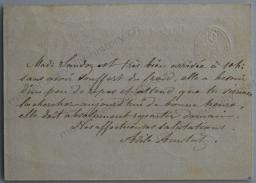 Made Sandoz est très bien arrivée à 10h
sans avoir souffert du froid, elle a besoin
d'un peu de repos et attend que tu viennes
la chercher aujourd'hui de bonne heure,
elle doit absolument repartir demain.
Nos affectueuses salutations.